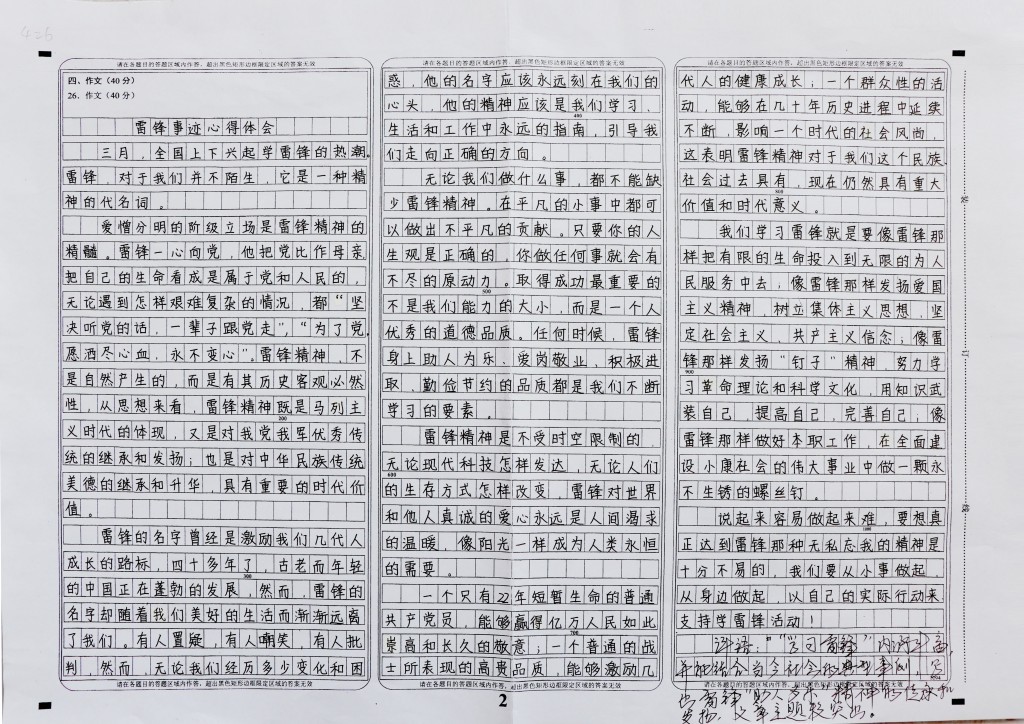 426
请在各题目的答题区域内作答，超出黑色矩形边框限定区域的答案无效
四、作文（40分）
26．作文（40分）
雷锋事迹心得体会
三月，全国上下兴起学雷锋的热潮。
雷锋，对于我们并不陌生，它是一种精
神的代名词。
爱憎分明的阶级立场是雷锋精神的
精髓。雷锋一心向党，他把党比作母亲，
把自己的生命看成是属于党和人民的，
无论遇到怎样艰难复杂的情况，都“坚
决听党的话，一辈子跟党走”，“为了党，
愿洒尽心血，永不变心”。雷锋精神，不
是自然产生的，而是有其历史客观必然
性，从思想来看，雷锋精神既是马列主
200
义时代的体现，又是对我党我军优秀传
统的继承和发扬；也是对中华民族传统
美德的继承和升华，具有重要的时代价
值。
雷锋的名字曾经是激励我们几代人
成长的路标，四十多年了，古老而年轻
300
的中国正在蓬勃的发展，然而，雷锋的
名字却随着我们美好的生活而渐渐远离
了我们。有人置疑，有人嘲笑，有人批
判，然而，无论我们经历多少变化和困
请在各题目的答题区域内作答，超出黑色矩形边框限定区域的答案无效
请在各题目的答题区域内作答，超出黑色矩形边框限定区域的答案无效
惑，他的名字应该永远刻在我们的
心头，他的精神应该是我们学习，
400
生活和工作中永远的指南，引导我
们走向正确的方向。
无论我们做什么事，都不能缺
少雷锋精神。在平凡的小事中都可
以做出不平凡的贡献。只要你的人
生观是正确的，你做任何事就会有
不尽的原动力。取得成功最重要的
500
不是我们能力的大小，而是一个人
优秀的道德品质。任何时候，雷锋
身上助人为乐、爱岗敬业，积极进
取、勤俭节约的品质都是我们不断
学习的要素。
雷锋精神是不受时空限制的，
无论现代科技怎样发达，无论人们
600
的生存方式怎样改变，雷锋对世界
和他人真诚的爱心永远是人间渴求
的温暖，像阳光一样成为人类永恒
的需要。
一个只有22年短暂生命的普通
共产党员，能够赢得亿万人民如此
700
崇高和长久的敬意；一个普通的战
士所表现的高贵品质，能够激励几
请在各题目的答题区域内作答，超出黑色矩形边框限定区域的答案无效
2
请在各题目的答题区域内作答，超出黑色矩形边框限定区域的答案无效
代人的健康成长；一个群众性的活
动，能够在几十年历史进程中延续
不断，影响一个时代的社会风尚，
这表明雷锋精神对于我们这个民族、
社会过去具有，现在仍然具有重大
800
价值和时代意义。
我们学习雷锋就是要像雷锋那
样把有限的生命投入到无限的为人
民服务中去；像雷锋那样发扬爱国
主义精神，树立集体主义思想，坚
定社会主义，共产主义信念；像雷
锋那样发扬“钉子”精神，努力学
900
习革命理论和科学文化，用知识武
装自己，提高自己，完善自己；像
雷锋那样做好本职工作，在全面建
设小康社会的伟大事业中做一颗永
不生锈的螺丝钉。
说起来容易做起来难，要想真
1000
正达到雷锋那种无私忘我的精神是
十分不易的，我们要从小事做起，
从身边做起，以自己的实际行动来
支持学雷锋活动！
评语：“学习雷锋”内涵丰富，
并能结合当今社会的典型事例，写
出雷锋“助人为乐”精神的传承和
发扬。文章主题较突出。
装
订
线